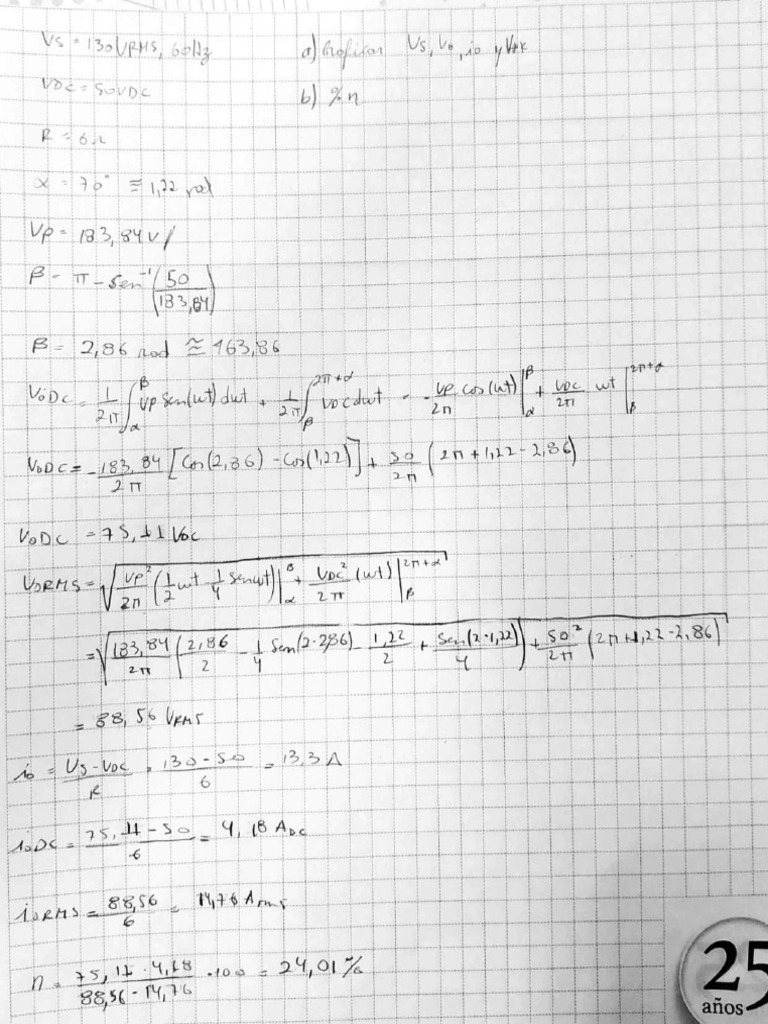 Vs = 130 VRMS, 60Hz
a) Graficar Vs, Vo, io y VAK
VDC = 50VDC
b) %n
R = 6Ω
α = 70° ≅ 1,22 rad
Vp = 183,84 V/
β = π - sen⁻¹(50/183,84)
β = 2,86 rad ≅ 163,86
VoDC = 1/2π ∫_α^β Vp sen(wt) dwt + 1/2π ∫_β^2π+α VDC dwt = -Vp/2π cos(wt)|_α^β + VDC/2π wt|_β^2π+α
VoDC = -183,84/2π [Cos(2,86) - cos(1,22)] + 50/2π (2π + 1,22 - 2,86)
VoDC = 75,11 VDC
VORMS = √(Vp²/2π (1/2 wt - 1/4 Sen wt)|_α^β + VDC²/2π (wt)|_β^2π+α)
= √(183,84/2π (2,86/2 - 1/4 Sen(2·2,86) - 1,22/2 + Sen(2·1,22)/4) + 50²/2π (2π + 1,22 - 2,86))
= 88,56 VRMS
io = Vs-VDC/R = 130-50/6 = 13,3 A
ioDC = 75,11-50/6 = 4,18 ADC
ioRMS = 88,56/6 = 14,76 Arms
n = 75,11 · 4,18/88,56 · 14,76 · 100 = 24,01%
25
años